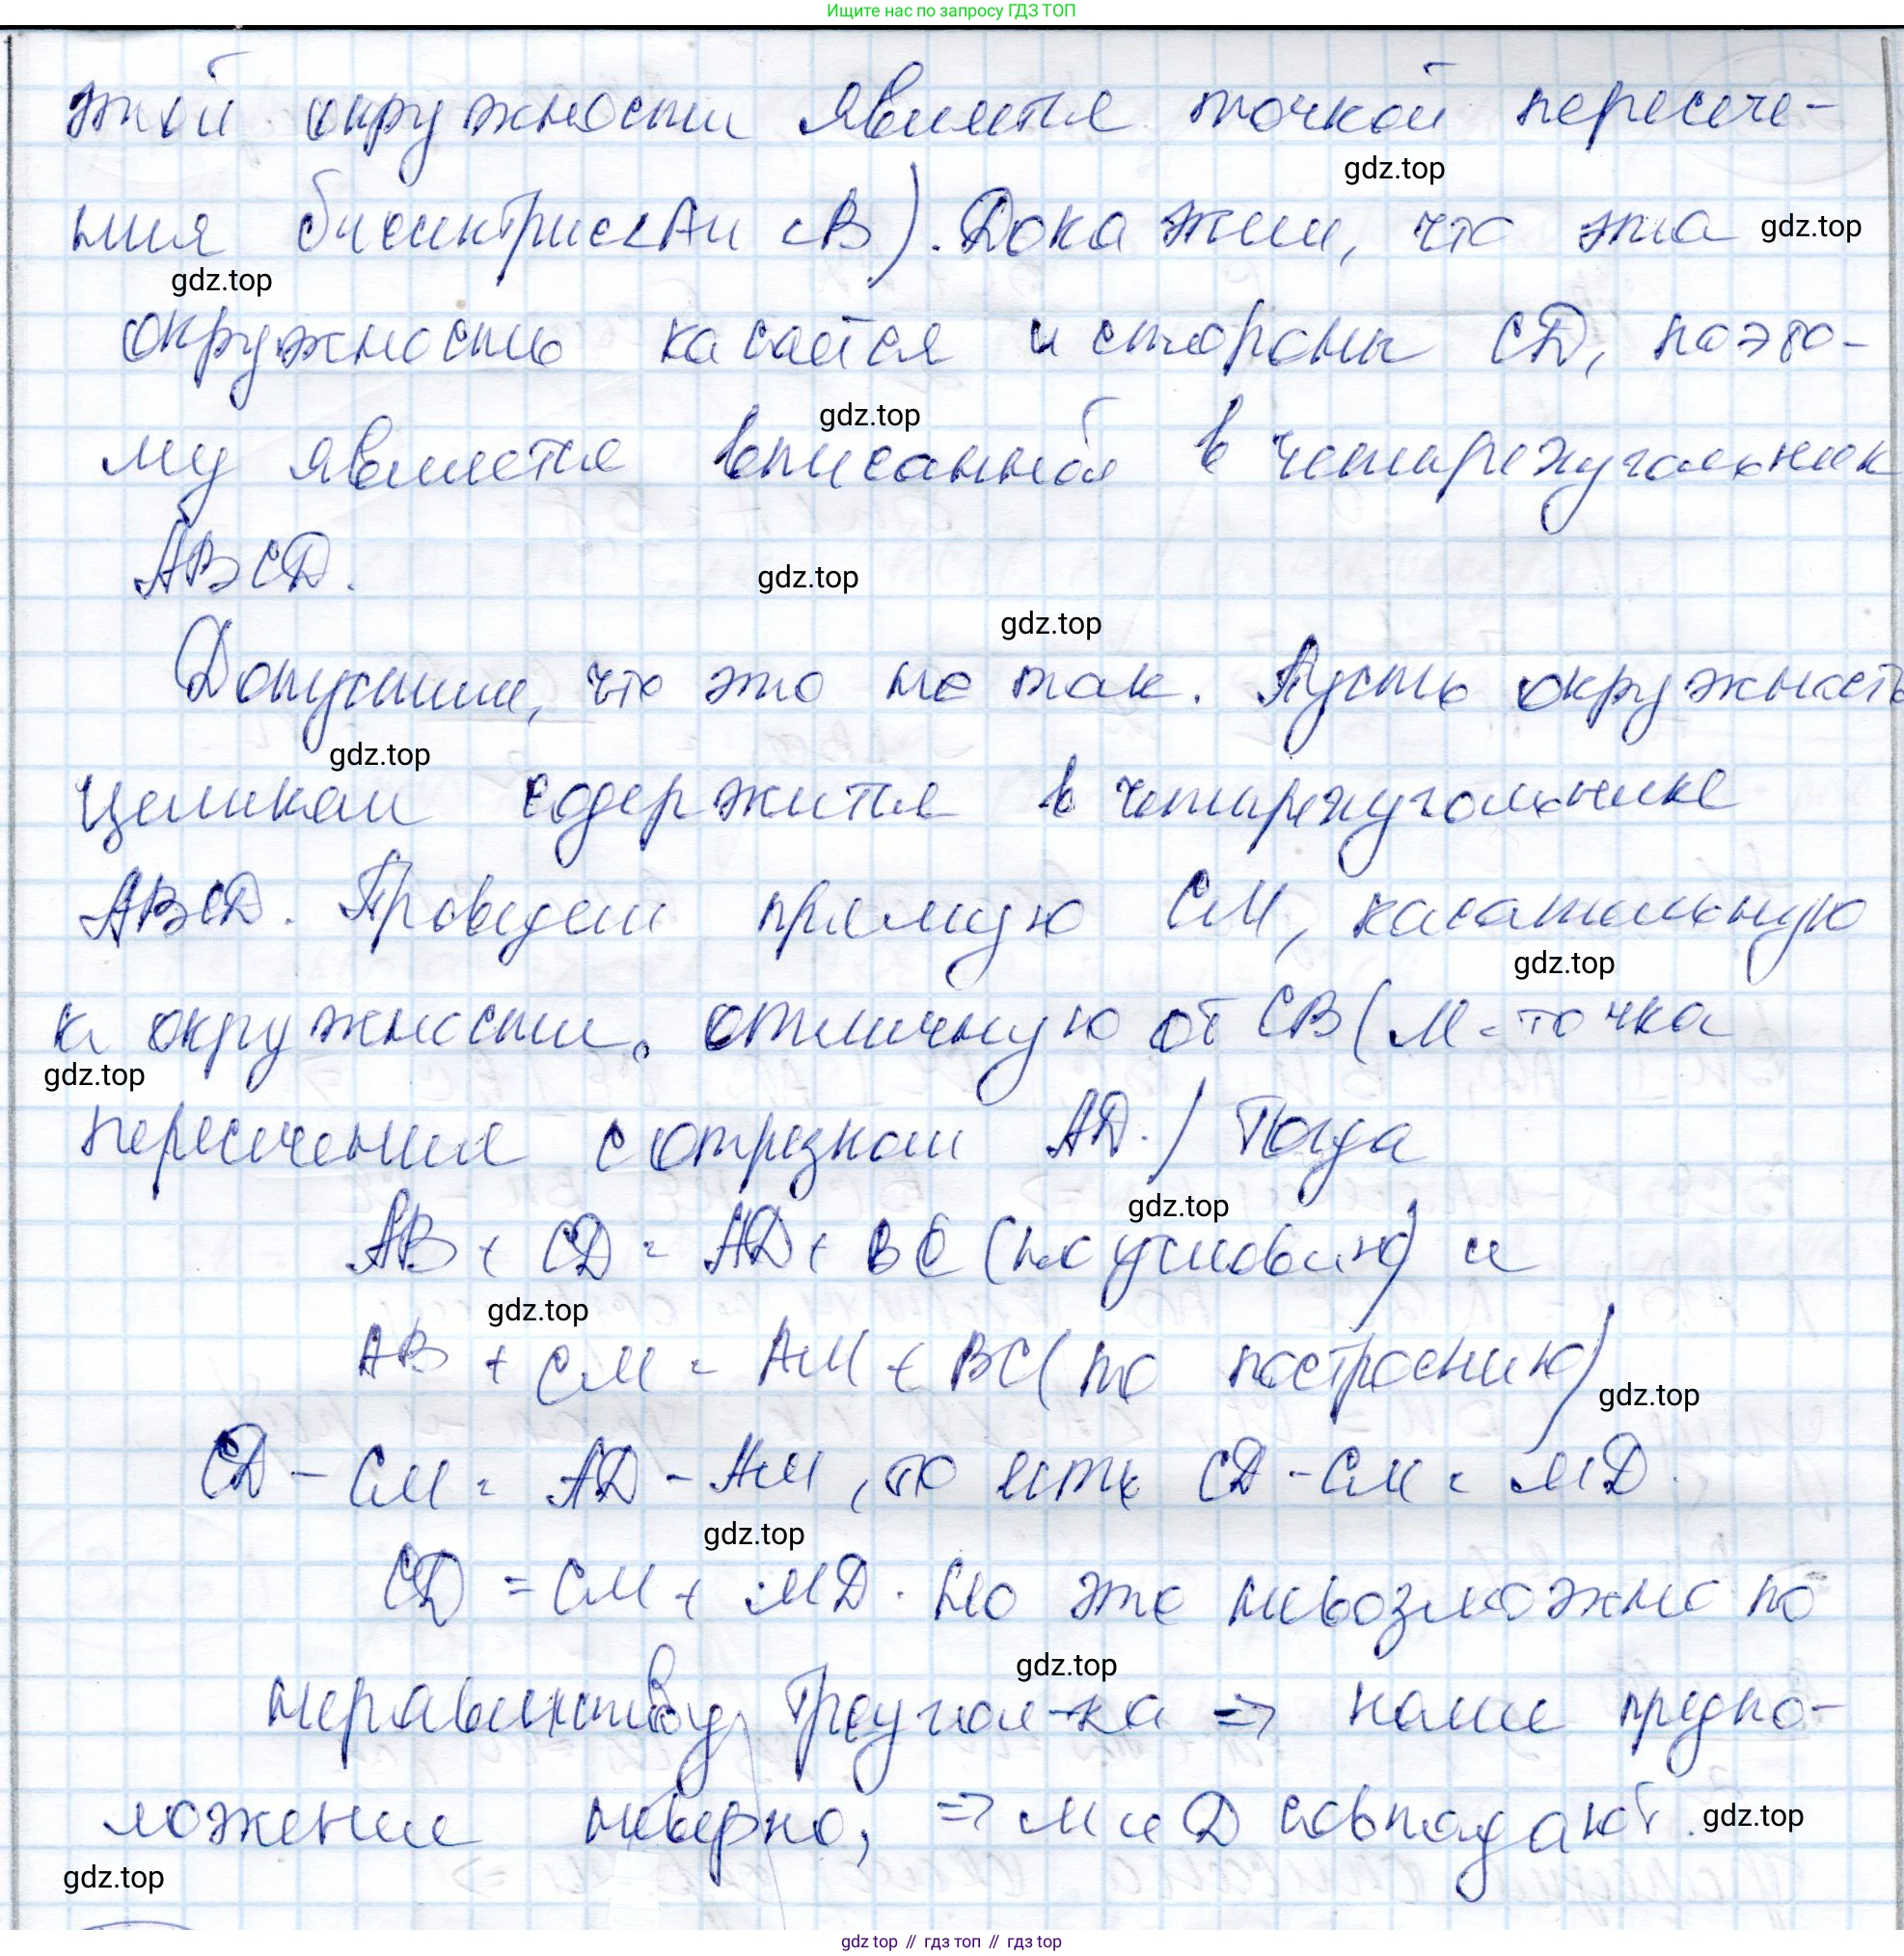 Ищите нас по запросу ГДЗ ТОП
этой окружности является точкой пересече-
gdz.top
ния биссектрис ∠A и ∠B). Докажем, что эта
gdz.top
gdz.top
окружность касается и стороны CD, поэто-
gdz.top
му является вписанной в четырехугольник
ABCD.
gdz.top
gdz.top
Допустим, что это не так. Пусть окружность
gdz.top
целиком содержится в четырехугольнике
ABCD. Проведем прямую CM, касательную
gdz.top
к окружности, отличную от CB (M - точка
gdz.top
пересечения с отрезком AD.) Тогда
gdz.top
AB + CD = AD + BC (по условию) и
gdz.top
AB + CM = AM + BC (по построению)
gdz.top
CD - CM = AD - AM, то есть CD - CM = MD.
gdz.top
CD = CM + MD. Но это невозможно по
gdz.top
неравенству треугол-ка => наше предпо-
ложение неверно, => M и D совпадают.
gdz.top
gdz.top
gdz top // гдз топ // гдз top